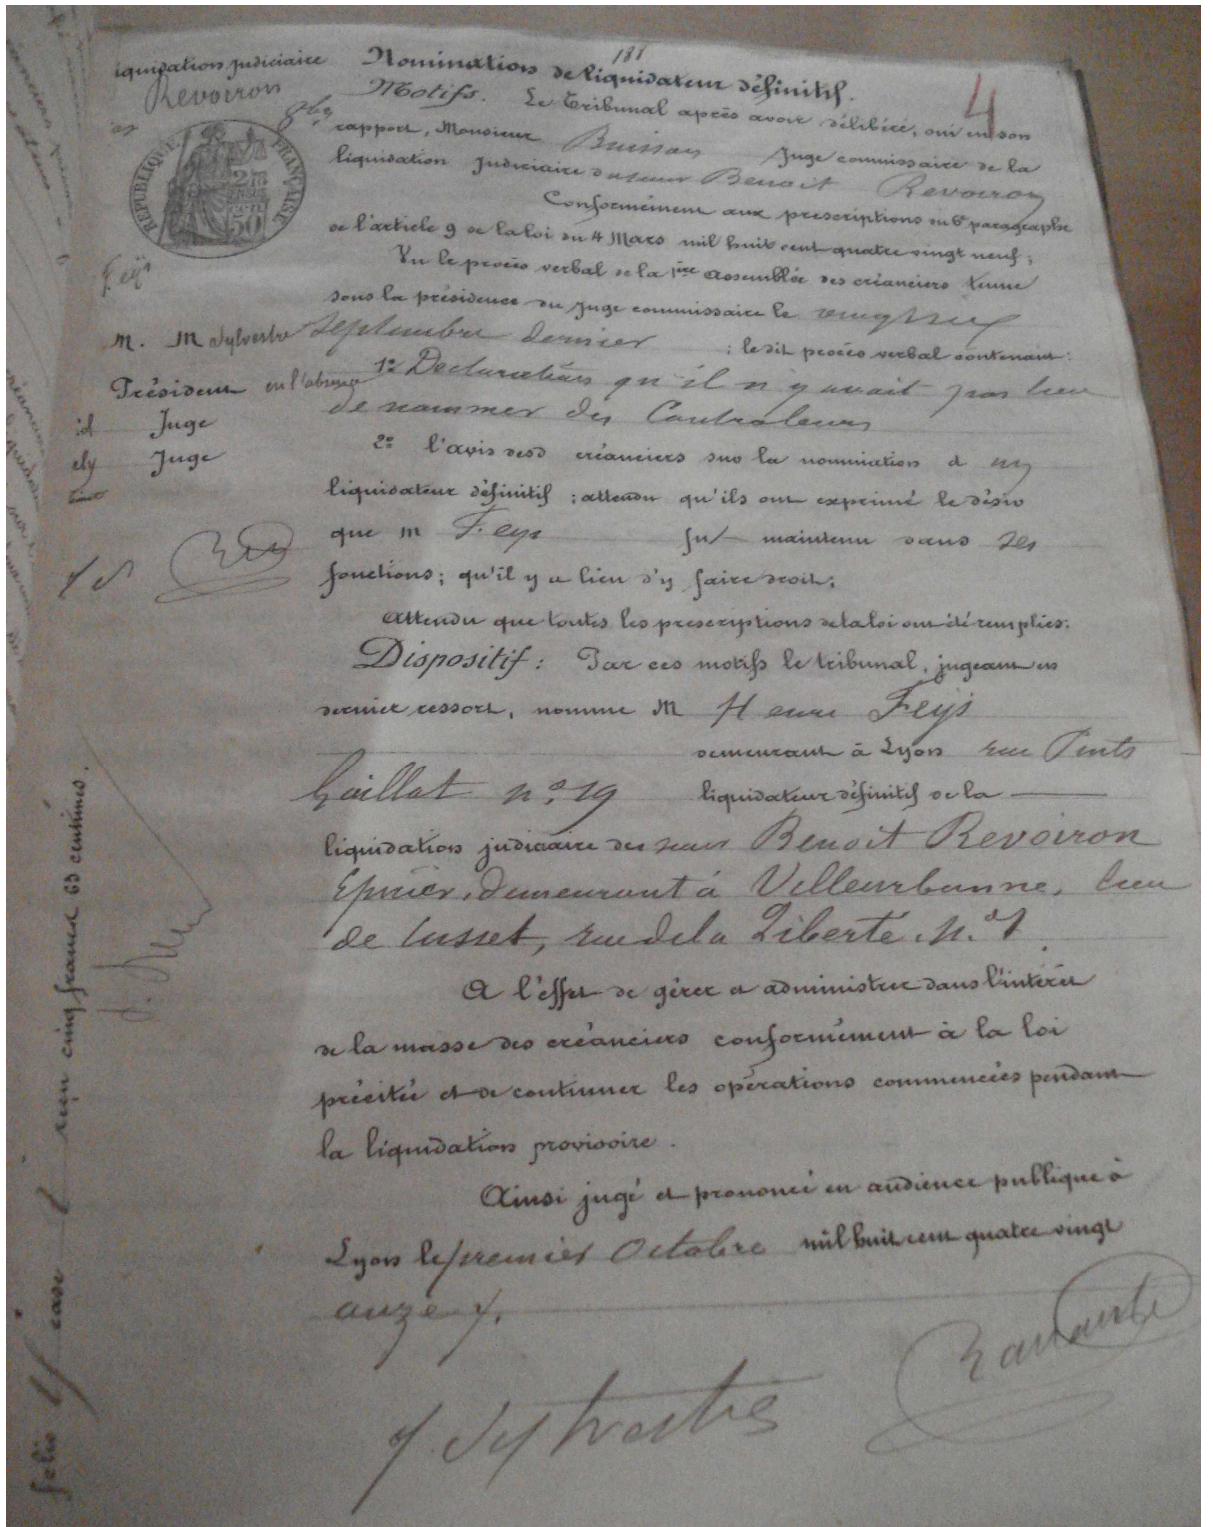 188
iquidation judiciaire
Revoiron
4
RÉPUBLIQUE FRANÇAISE
Feÿs
M. M Sylvestre
Président en l'absence
id Juge
ely Juge
Nomination de liquidateur définitif.
Motifs. Le Tribunal après avoir délibéré, ouï en son
rapport, Monsieur Buisson Juge commissaire de la
liquidation judiciaire du sieur Benoit Revoiron
Conformément aux prescriptions du 6e paragraphe
de l'article 9 de la loi du 4 Mars mil huit cent quatre vingt neuf;
Vu le procès verbal de la 1ère assemblée des créanciers tenue
sous la présidence du Juge commissaire le
septembre dernier ; le dit procès verbal contenant:
1° Déclaration qu'il n'y avait pas lieu
de nommer des Contrôleurs
2° l'avis desd créanciers sur la nomination d un
liquidateur définitif ; attendu qu'ils ont exprimé le désir
que M Feys fut maintenu dans ses
fonctions; qu'il y a lieu d'y faire droit;
Attendu que toutes les prescriptions de la loi ont été remplies.
Dispositif: Par ces motifs le tribunal, jugeant en
dernier ressort, nomme M Henri Feÿs
demeurant à Lyon rue Puits
Gaillot n° 19 liquidateur définitif de la
liquidation judiciaire du sieur Benoit Revoiron
Epicier, demeurant à Villeurbanne, lieu
de Cusset, rue de la Liberté, N° 1
A l'effet de gérer et administrer dans l'intérêt
de la masse des créanciers conformément à la loi
précitée et de continuer les opérations commencées pendant
la liquidation provisoire.
Ainsi jugé et prononcé en audience publique à
Lyon le premier Octobre mil huit cent quatre vingt
onze.
Sylvestre
folio case reçu cinq francs 63 centimes.